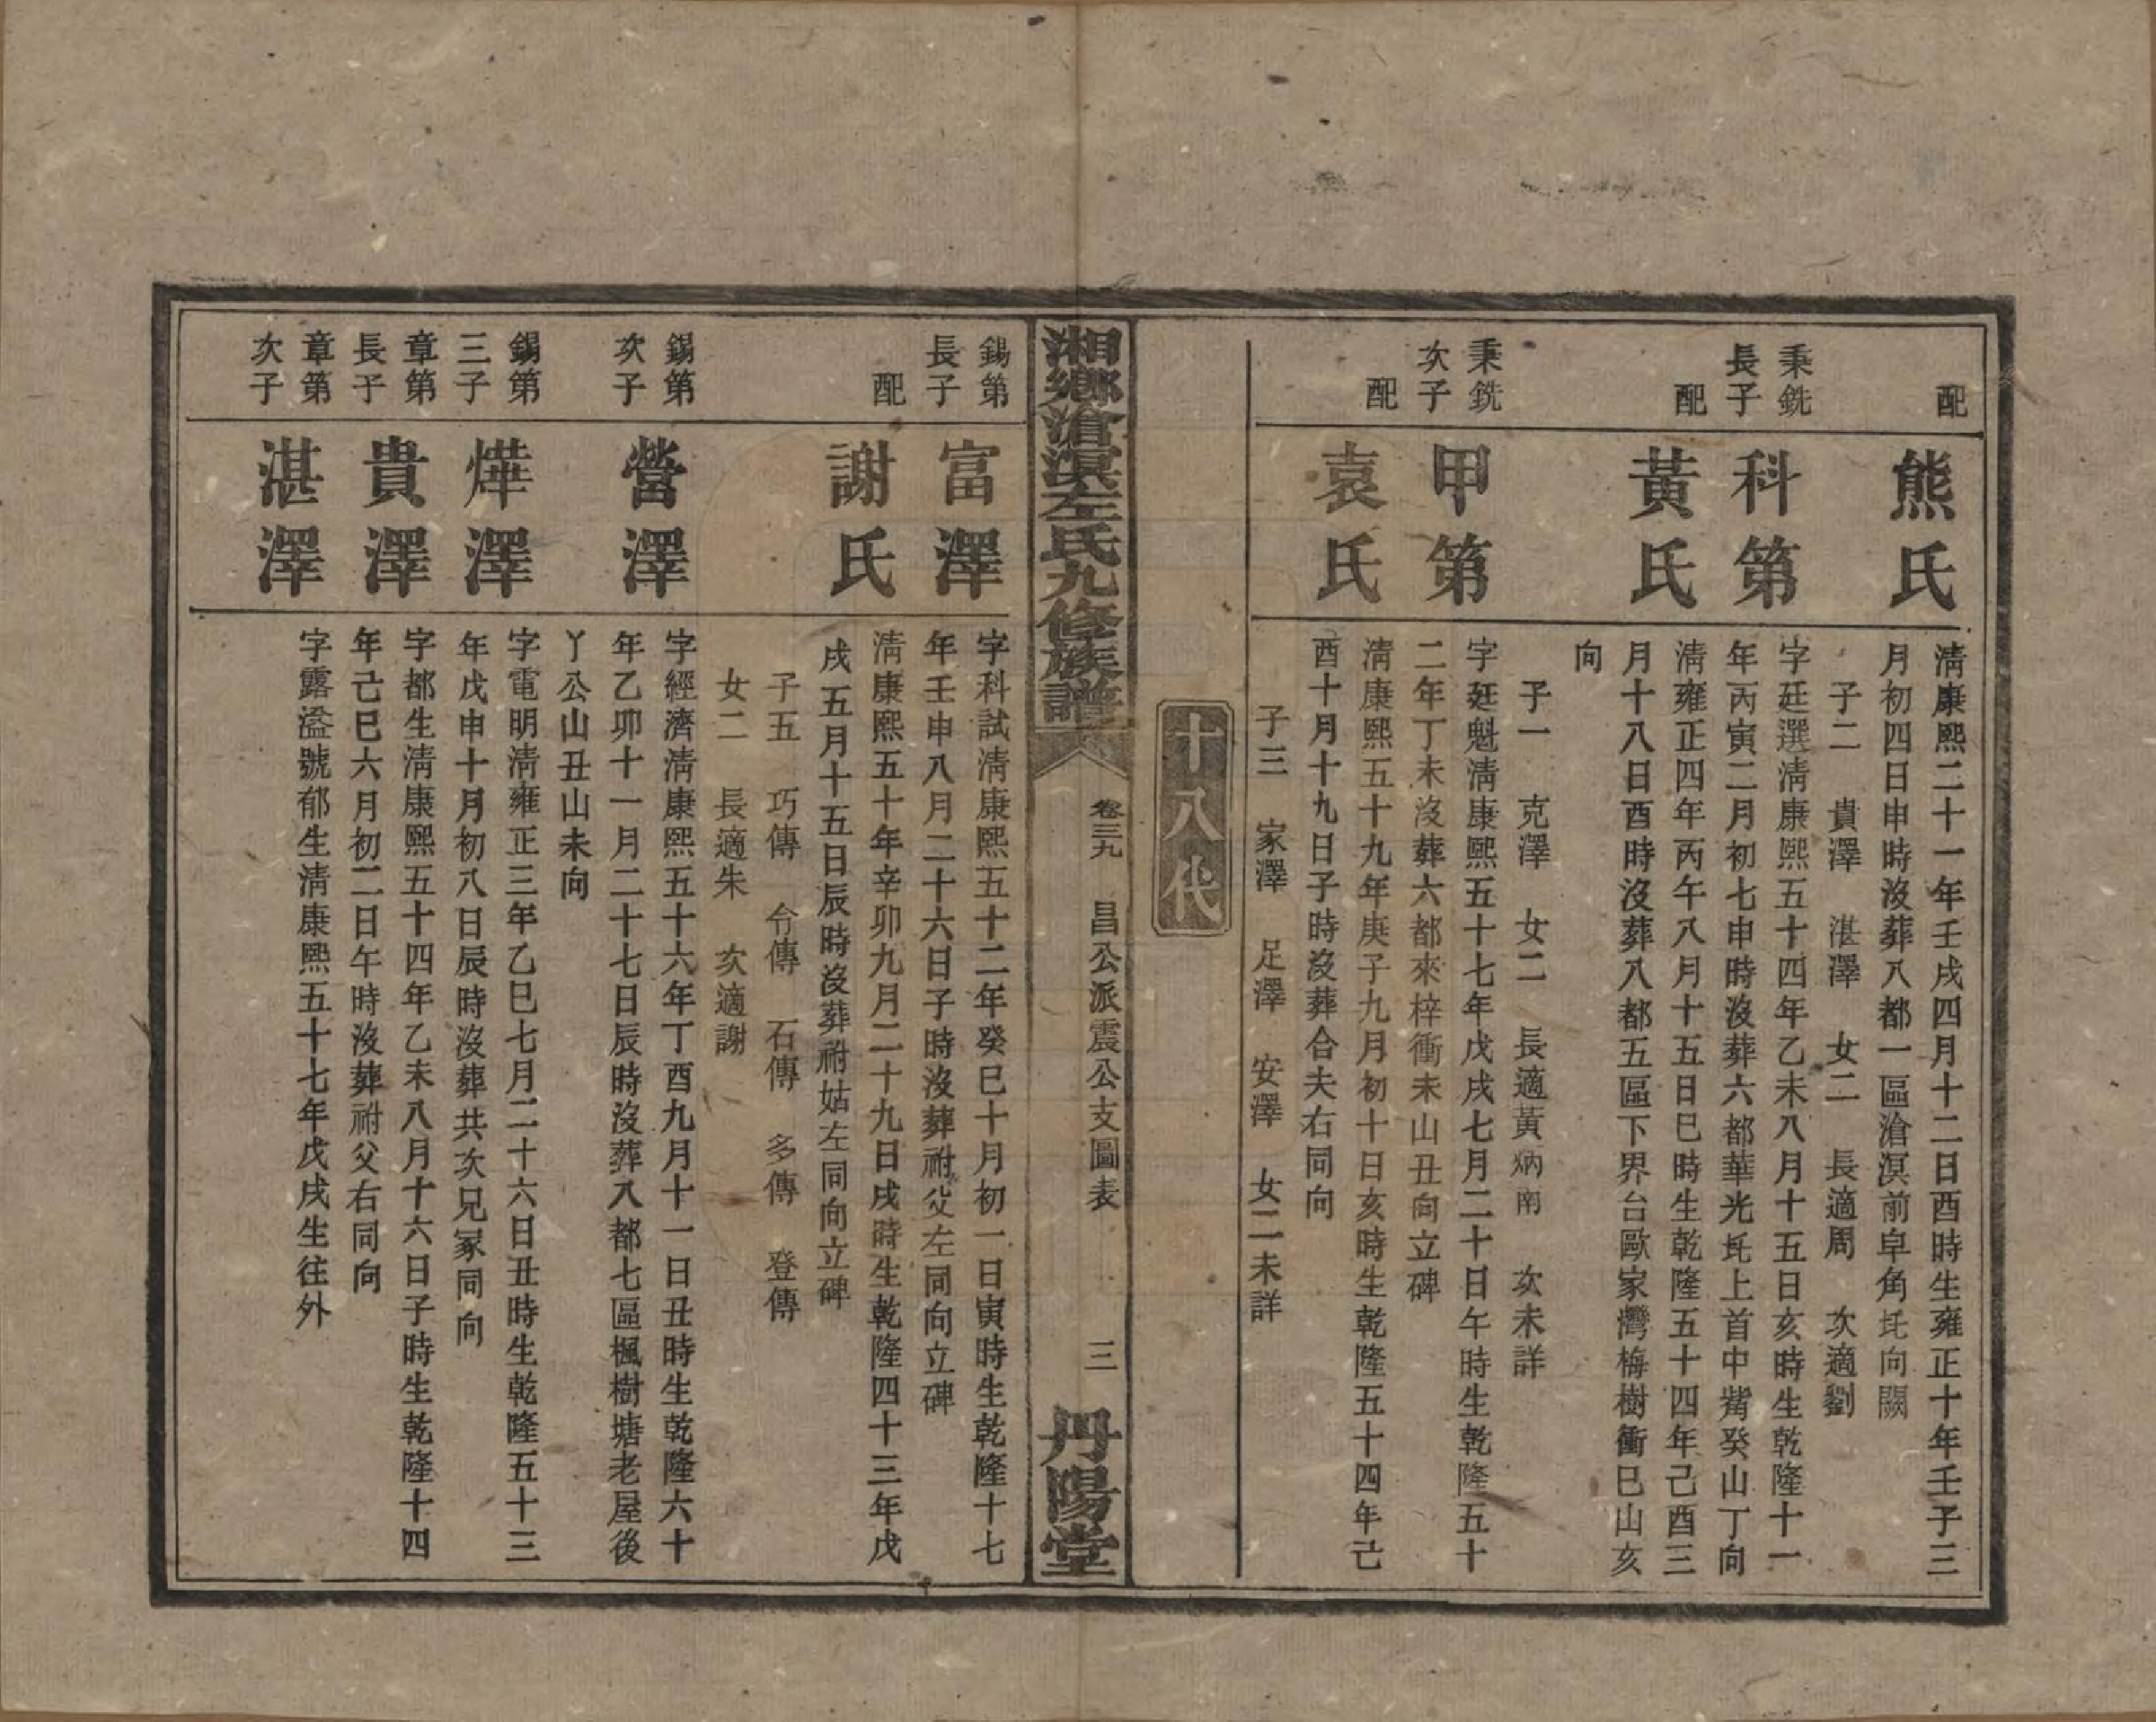 配
熊氏
清康熙二十一年壬戌四月十二日酉時生雍正十年壬子三
月初四日申時沒葬八都一區滄溟前皁角坉向闕
子二　貴澤　湛澤　女二　長適周　次適劉
秉銑
長子
科第
字廷選清康熙五十四年乙未八月十五日亥時生乾隆十一
年丙寅二月初七申時沒葬六都華光坉上首中觜癸山丁向
配
黃氏
清雍正四年丙午八月十五日巳時生乾隆五十四年己酉三
月十八日酉時沒葬八都五區下界台歐家灣梅樹衝巳山亥
向
子一　克澤　女二　長適黃炳南　次未詳
秉銑
次子
甲第
字廷魁清康熙五十七年戊戌七月二十日午時生乾隆五十
二年丁未沒葬六都來梓衝未山丑向立碑
配
袁氏
清康熙五十九年庚子九月初十日亥時生乾隆五十四年己
酉十月十九日子時沒葬合夫右同向
子三　家澤　足澤　安澤　女二未詳
十八代
湘鄉滄溟左氏九修族譜
卷三九　昌公派震公支圖表　三
丹陽堂
錫第
長子
富澤
字科試清康熙五十二年癸巳十月初一日寅時生乾隆十七
年壬申八月二十六日子時沒葬祔父左同向立碑
配
謝氏
清康熙五十年辛卯九月二十九日戌時生乾隆四十三年戊
戌五月十五日辰時沒葬祔姑左同向立碑
子五　巧傳　令傳　石傳　多傳　登傳
女二　長適朱　次適謝
錫第
次子
營澤
字經濟清康熙五十六年丁酉九月十一日丑時生乾隆六十
年乙卯十一月二十七日辰時沒葬八都七區楓樹塘老屋後
丫公山丑山未向
錫第
三子
燁澤
字電明清雍正三年乙巳七月二十六日丑時生乾隆五十三
年戊申十月初八日辰時沒葬共次兄冢同向
章第
長子
貴澤
字都生清康熙五十四年乙未八月十六日子時生乾隆十四
年己巳六月初二日午時沒葬祔父右同向
章第
次子
湛澤
字露溢號郁生清康熙五十七年戊戌生往外